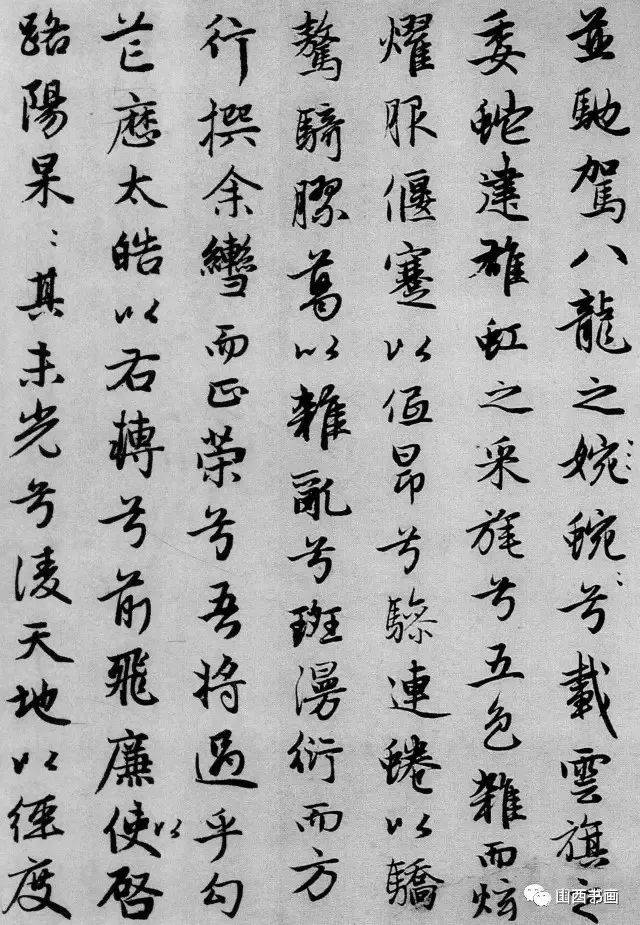 並馳駕八龍之婉：蜿：兮載雲旗之
委蛇建雄虹之采旄兮五色雜而炫
燿服偃蹇以低昂兮驂連蜷以驕
驁騎膠葛以雜亂兮斑漫衍而方
行撰余轡而正策兮吾將過乎勾
芒歷太皓以右轉兮前飛廉使以啓
路陽杲：其未光兮凌天地以徑度
山西书画